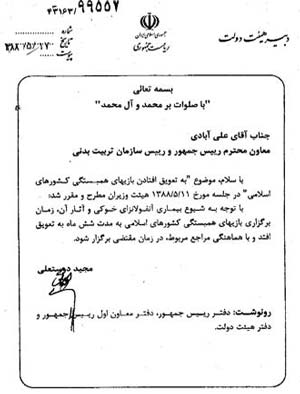 ۹۹۵۵۷/۴۳۱۶۳
شماره
تاریخ ۱۳۸۸/۵/۱۷
پیوست
جمهوری اسلامی ایران
ریاست جمهوری
دبیر هیئت دولت
بسمه تعالی
"با صلوات بر محمد و آل محمد"
جناب آقای علی آبادی
معاون محترم رییس جمهور و رییس سازمان تربیت بدنی
با سلام، موضوع "به تعویق افتادن بازیهای همبستگی کشورهای
اسلامی" در جلسه مورخ ۱۳۸۸/۵/۱۱ هیئت وزیران مطرح و مقرر شد:
با توجه به شیوع بیماری آنفلوانزای خوکی و آثار آن، زمان
برگزاری بازیهای همبستگی کشورهای اسلامی به مدت شش ماه به تعویق
افتد و با هماهنگی مراجع مربوط، در زمان مقتضی برگزار شود.
مجید دوستعلی
رونوشت: دفتر رییس جمهور، دفتر معاون اول رییس جمهور و
دفتر هیئت دولت.